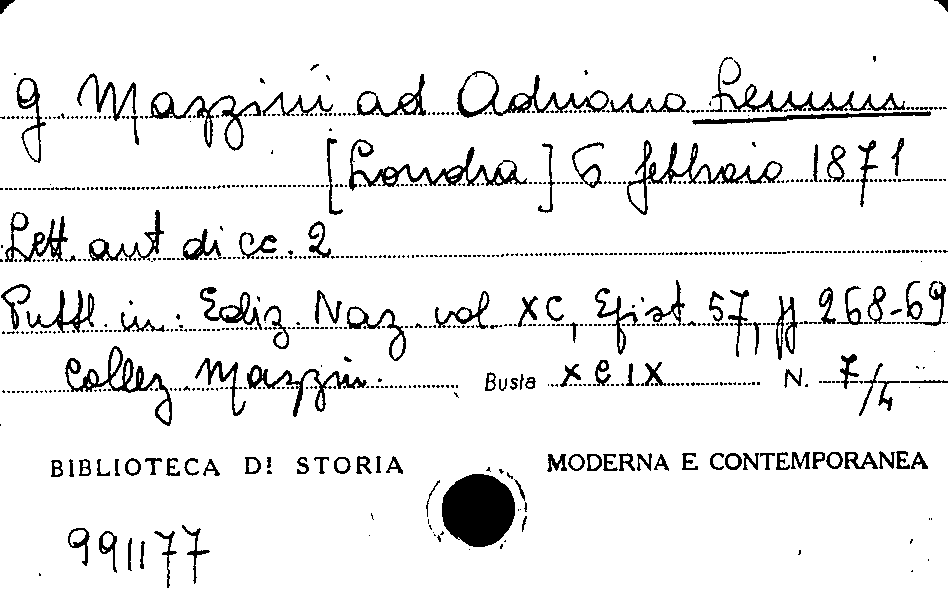 G. Mazzini ad Adriano Lemmi
[Londra] 6 febbraio 1871
Lett. aut di cc. 2
Pubbl. in: Ediz. Naz. vol. XC, Epist. 57, pp 268-69
Collez Mazzini. Busta XCIX N. 7/4
BIBLIOTECA DI STORIA MODERNA E CONTEMPORANEA
991177